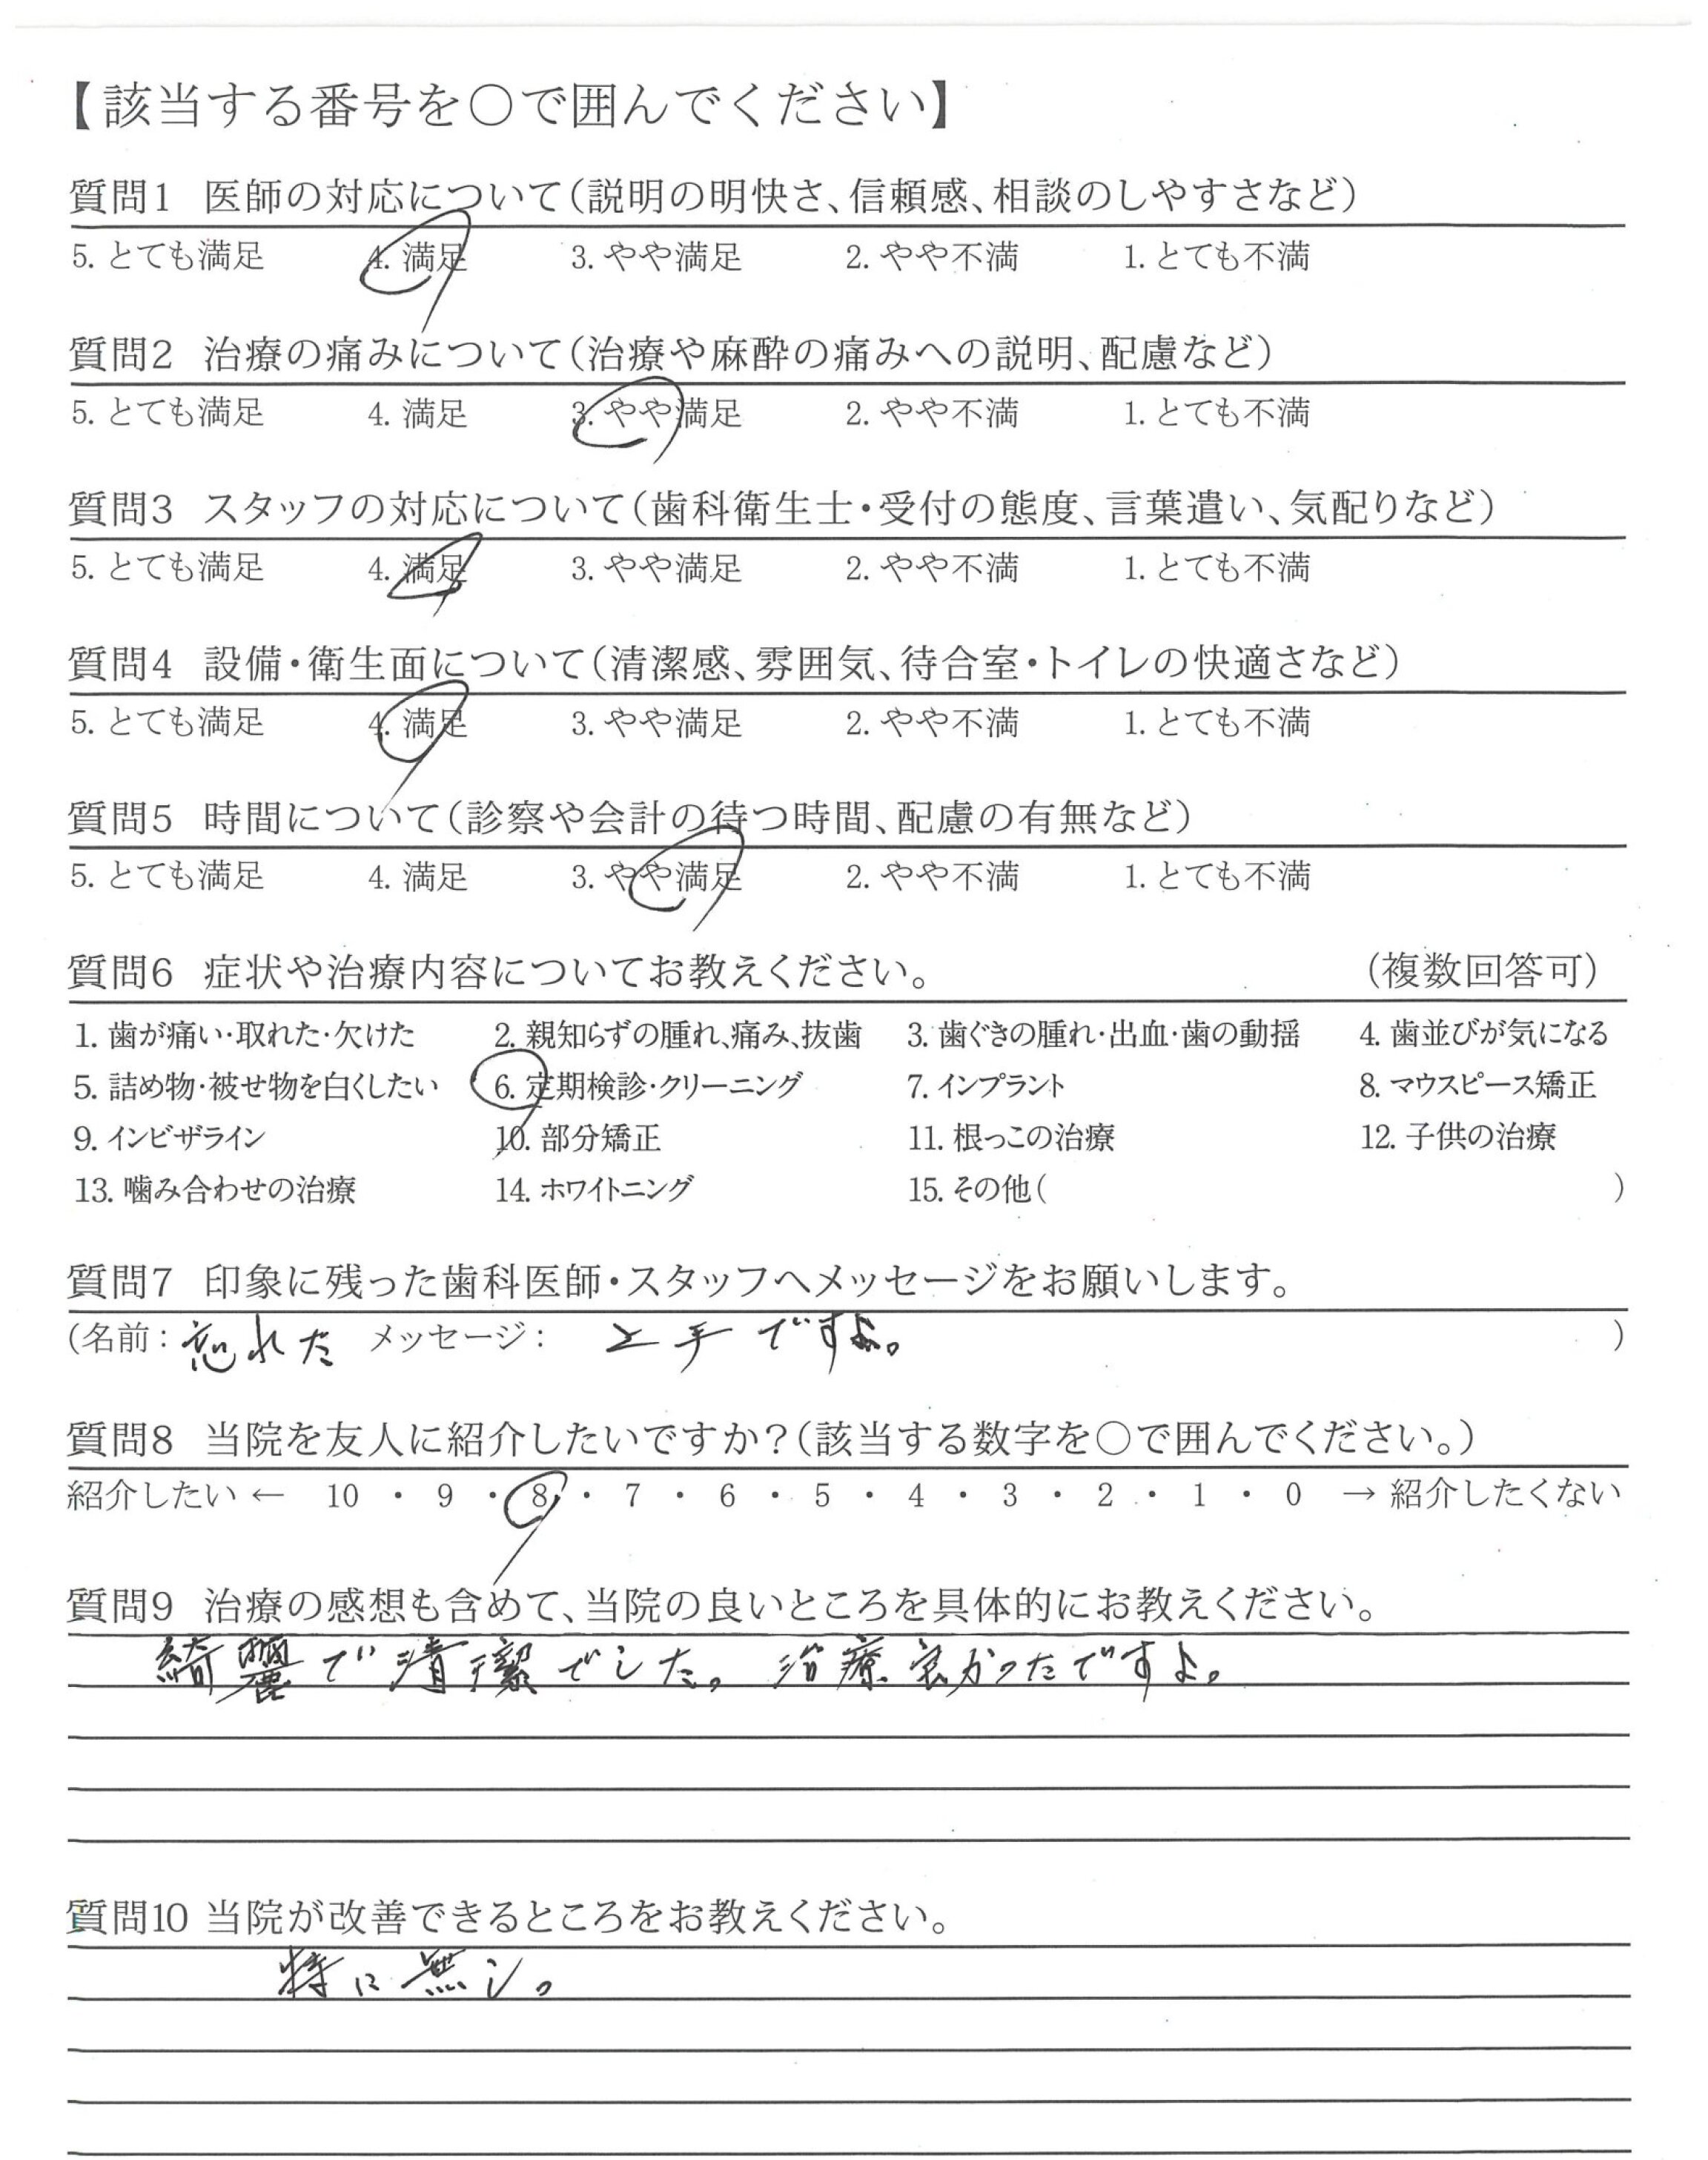 【該当する番号を○で囲んでください】
質問1 医師の対応について(説明の明快さ、信頼感、相談のしやすさなど)
5. とても満足 4. 満足 3. やや満足 2. やや不満 1. とても不満
質問2 治療の痛みについて(治療や麻酔の痛みへの説明、配慮など)
5. とても満足 4. 満足 3. やや満足 2. やや不満 1. とても不満
質問3 スタッフの対応について(歯科衛生士・受付の態度、言葉遣い、気配りなど)
5. とても満足 4. 満足 3. やや満足 2. やや不満 1. とても不満
質問4 設備・衛生面について(清潔感、雰囲気、待合室・トイレの快適さなど)
5. とても満足 4. 満足 3. やや満足 2. やや不満 1. とても不満
質問5 時間について(診察や会計の待つ時間、配慮の有無など)
5. とても満足 4. 満足 3. やや満足 2. やや不満 1. とても不満
質問6 症状や治療内容についてお教えください。 (複数回答可)
1. 歯が痛い・取れた・欠けた 2. 親知らずの腫れ、痛み、抜歯 3. 歯ぐきの腫れ・出血・歯の動揺 4. 歯並びが気になる
5. 詰め物・被せ物を白くしたい 6. 定期検診・クリーニング 7. インプラント 8. マウスピース矯正
9. インビザライン 10. 部分矯正 11. 根っこの治療 12. 子供の治療
13. 噛み合わせの治療 14. ホワイトニング 15. その他( )
質問7 印象に残った歯科医師・スタッフへメッセージをお願いします。
(名前: 忘れた メッセージ: 上手ですよ。 )
質問8 当院を友人に紹介したいですか?(該当する数字を○で囲んでください。)
紹介したい ← 10 ・ 9 ・ 8 ・ 7 ・ 6 ・ 5 ・ 4 ・ 3 ・ 2 ・ 1 ・ 0 → 紹介したくない
質問9 治療の感想も含めて、当院の良いところを具体的にお教えください。
綺麗で清潔でした。治療良かったですよ。
質問10 当院が改善できるところをお教えください。
特に無し。